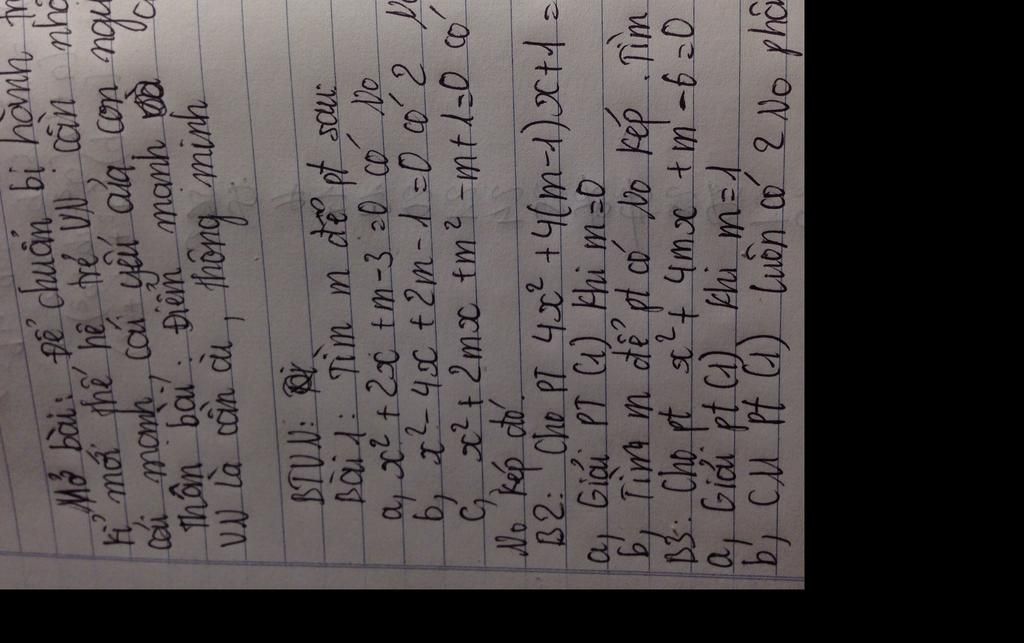 Mở bài: Để chuẩn bị hành
kỉ mới thế hệ trẻ VN cần
cái mạnh, cái yếu của con
Thân bài: Điểm mạnh
VN là cần cù, thông minh
BTVN:
Bài 1: Tìm m để pt sau:
a, x² + 2x + m - 3 = 0 có No
b, x² - 4x + 2m - 1 = 0 có 2
c, x² + 2mx + m² - m + 1 = 0 có
No kép đó.
B2: Cho PT 4x² + 4(m-1)x + 1 =
a, Giải PT (1) khi m=0
b, Tìm m để pt có No kép. Tìm
B3: Cho pt x² + 4mx + m - 6 = 0
a, Giải pt (1) khi m=1
b, CM pt (1) luôn có 2 No phân